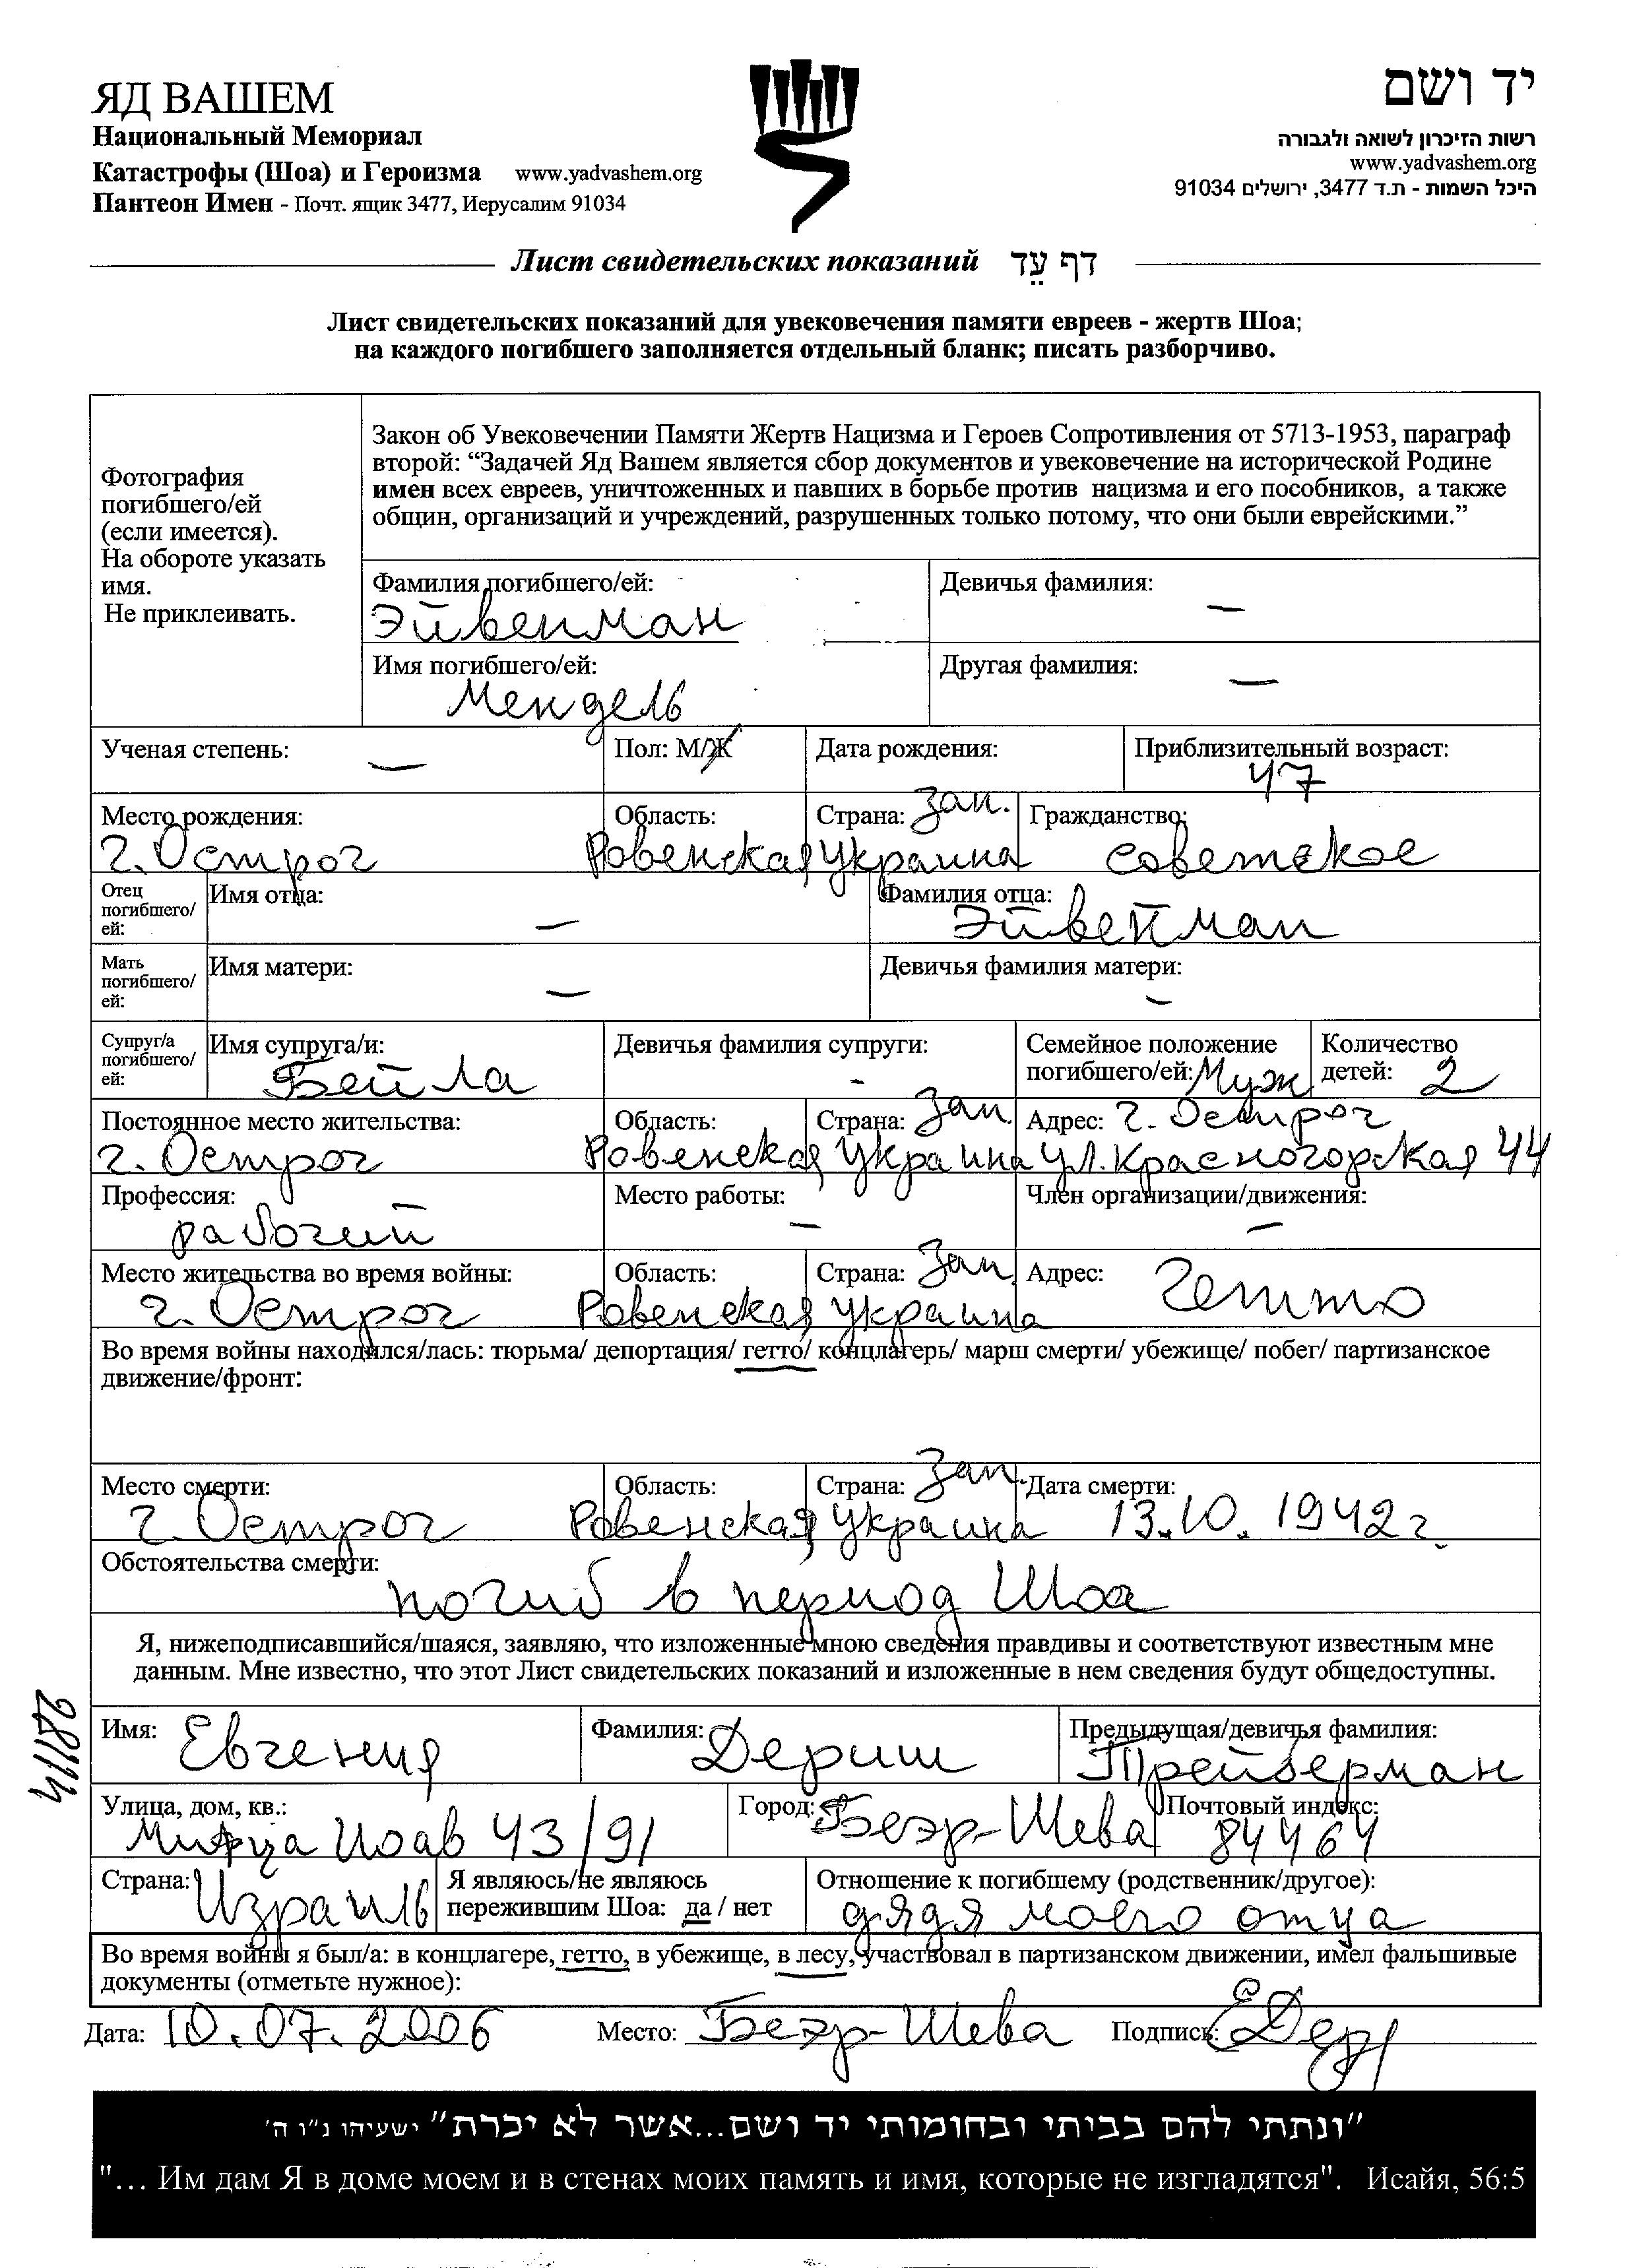 ЯД ВАШЕМ
Национальный Мемориал
Катастрофы (Шоа) и Героизма www.yadvashem.org
Пантеон Имен - Почт. ящик 3477, Иерусалим 91034
יד ושם
רשות הזיכרון לשואה ולגבורה
www.yadvashem.org
היכל השמות - ת.ד 3477, ירושלים 91034
Лист свидетельских показаний דף עֵד
Лист свидетельских показаний для увековечения памяти евреев - жертв Шоа;
на каждого погибшего заполняется отдельный бланк; писать разборчиво.
Фотография
погибшего/ей
(если имеется).
На обороте указать
имя.
Не приклеивать.
Закон об Увековечении Памяти Жертв Нацизма и Героев Сопротивления от 5713-1953, параграф
второй: “Задачей Яд Вашем является сбор документов и увековечение на исторической Родине
имен всех евреев, уничтоженных и павших в борьбе против нацизма и его пособников, а также
общин, организаций и учреждений, разрушенных только потому, что они были еврейскими.”
Фамилия погибшего/ей: Девичья фамилия:
Эйвенман –
Имя погибшего/ей: Другая фамилия:
Мендель –
Ученая степень: – Пол: М/Ж Дата рождения: Приблизительный возраст:
47
Место рождения: Область: Страна: Зап. Гражданство:
г. Острог Ровенская Украина советское
Отец
погибшего/
ей:
Имя отца: – Фамилия отца:
Мать
погибшего/
ей:
Имя матери: – Девичья фамилия матери: –
Супруг/а
погибшего/
ей:
Имя супруга/и: Девичья фамилия супруги: Семейное положение Количество
Бейла – погибшего/ей: Муж детей: 2
Постоянное место жительства: Область: Страна: Зап. Адрес: г. Острог
г. Острог Ровенская Украина ул. Красногорская 44
Профессия: Место работы: Член организации/движения:
рабочий – –
Место жительства во время войны: Область: Страна: Зап. Адрес: Гетто
г. Острог Ровенская Украина
Во время войны находился/лась: тюрьма/ депортация/ гетто/ концлагерь/ марш смерти/ убежище/ побег/ партизанское
движение/фронт:
Место смерти: Область: Страна: Зап. Дата смерти:
г. Острог Ровенская Украина 13.10.1942 г.
Обстоятельства смерти:
погиб в период Шоа
Я, нижеподписавшийся/шаяся, заявляю, что изложенные мною сведения правдивы и соответствуют известным мне
данным. Мне известно, что этот Лист свидетельских показаний и изложенные в нем сведения будут общедоступны.
Имя: Евгения Фамилия: Дериш Предыдущая/девичья фамилия:
Трейберман
Улица, дом, кв.: Город: Беэр-Шева Почтовый индекс:
Мивца Иоав 43/91 84464
Страна: Израиль Я являюсь/не являюсь Отношение к погибшему (родственник/другое):
пережившим Шоа: да / нет дядя моего отца
Во время войны я был/а: в концлагере, гетто, в убежище, в лесу, участвовал в партизанском движении, имел фальшивые
документы (отметьте нужное):
Дата: 10.07.2006 Место: Беэр-Шева Подпись: ЕДер
"ונתתי להם בביתי ובחומותי יד ושם...אשר לא יכרת" ישעיהו נ"ו ה'
"... Им дам Я в доме моем и в стенах моих память и имя, которые не изгладятся". Исайя, 56:5